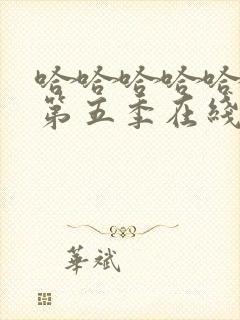 哈哈哈哈哈
第五季在綫
華斌